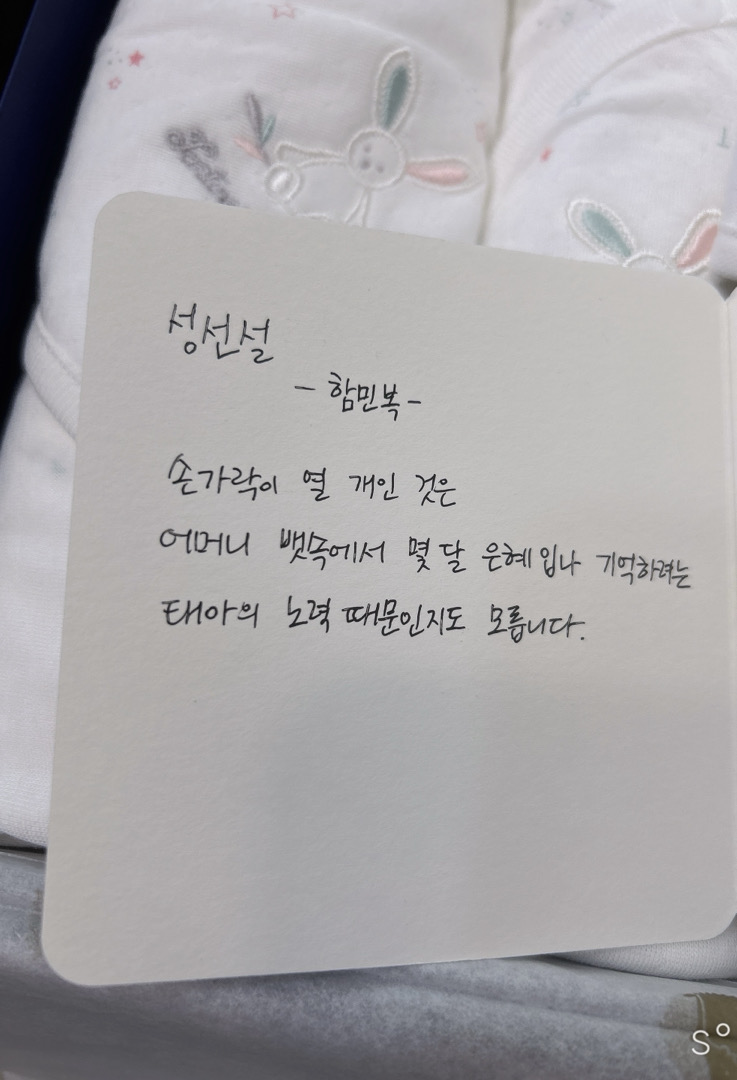 성선설
- 함민복 -
손가락이 열 개인 것은
어머니 뱃속에서 몇 달 은혜 입나 기억하려는
태아의 노력 때문인지도 모릅니다.
S°